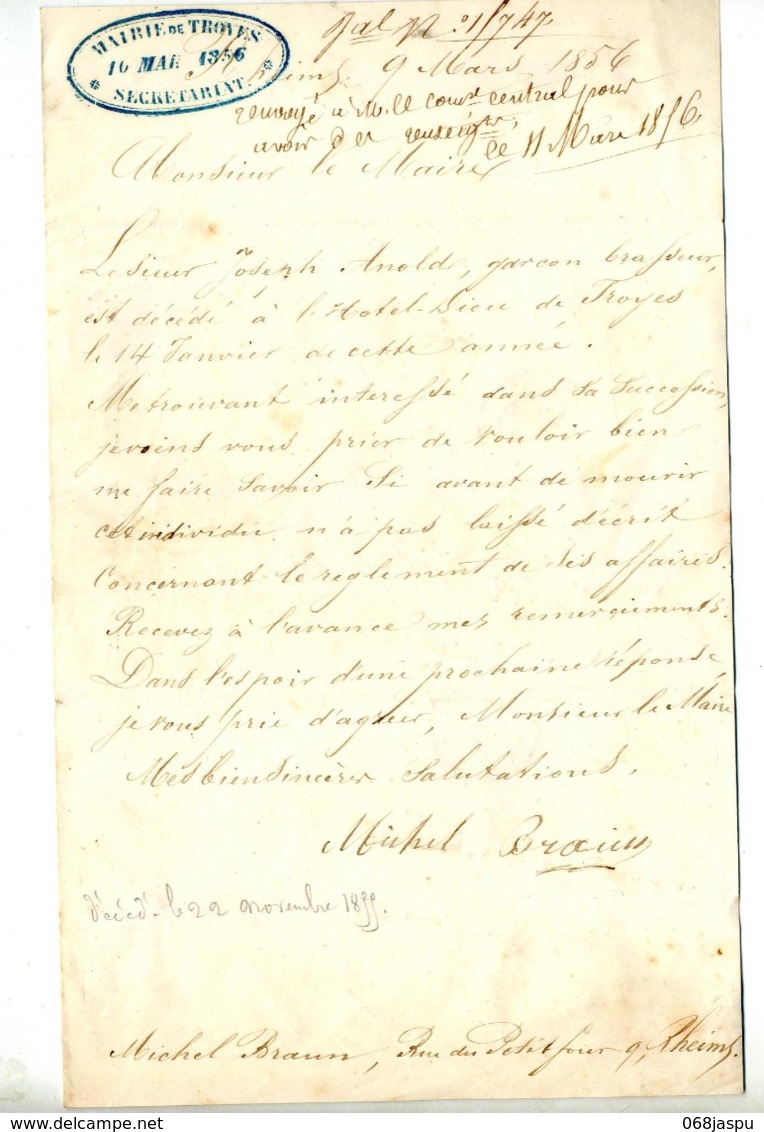 MAIRIE DE TROYES
10 MAR 1856
SECRETARIAT
Gal No 1/747
Rheims, 9 Mars 1856
renvoyé à M. le comre central pour
avoir des renseigts
le 11 Mars 1856
Monsieur le Maire
Le sieur Joseph Anold, garçon brasseur,
est décédé à l'Hotel-Dieu de Troyes
le 14 Janvier de cette année.
Me trouvant interessé dans sa succession,
je viens vous prier de vouloir bien
me faire savoir si avant de mourir
cet individu n'a pas laissé d'écrit
concernant le reglement de ses affaires.
Recevez à l'avance mes remerciements.
Dans l'espoir d'une prochaine réponse
je vous prie d'agréer, Monsieur le Maire
Mes bien sincères salutations.
Michel Braun
décédé le 22 novembre 1855.
Michel Braun, Rue du Petit four 9, Rheims.
068jaspu